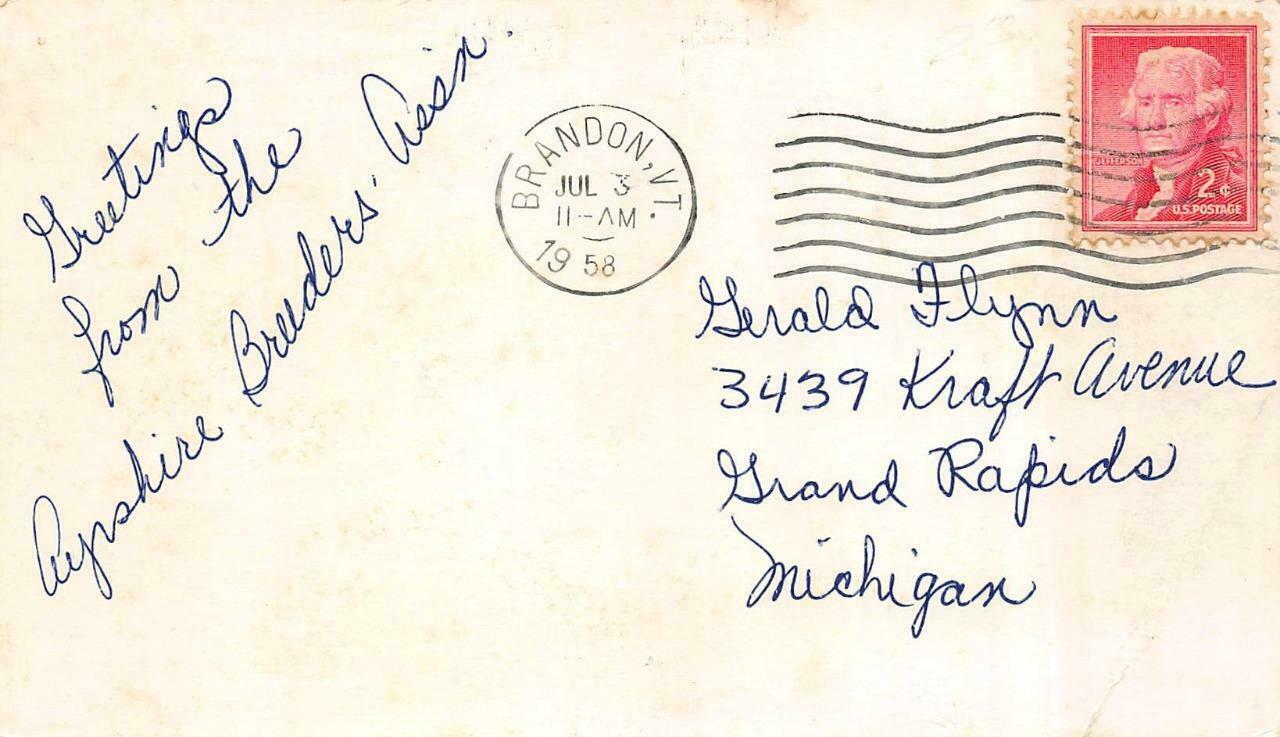 Greetings
from the
Ayrshire Breeders' Ass'n.
BRANDON, VT.
JUL 3
11-AM
1958
JEFFERSON
2¢
U.S. POSTAGE
Gerald Flynn
3439 Kraft Avenue
Grand Rapids
Michigan